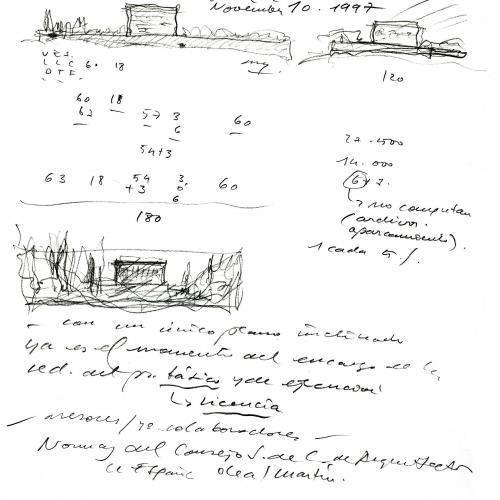 November 10. 1997
120
60 18
60 18
62 57 3 60
6
54+3
63 18 54 3, 60
+3 0
6
180
27.500
14.000
6+2.
no computan
(archivos.
aparcamiento).
1 cada 5/.
- con un único plano inclinado
ya es el momento del encargo de la
red. del pr. básico y de ejecución
↳ licencia
- asesores/ colaboradores -
Normas del Consejo S. de C. de Arquitectos
de España Olea/Martín.